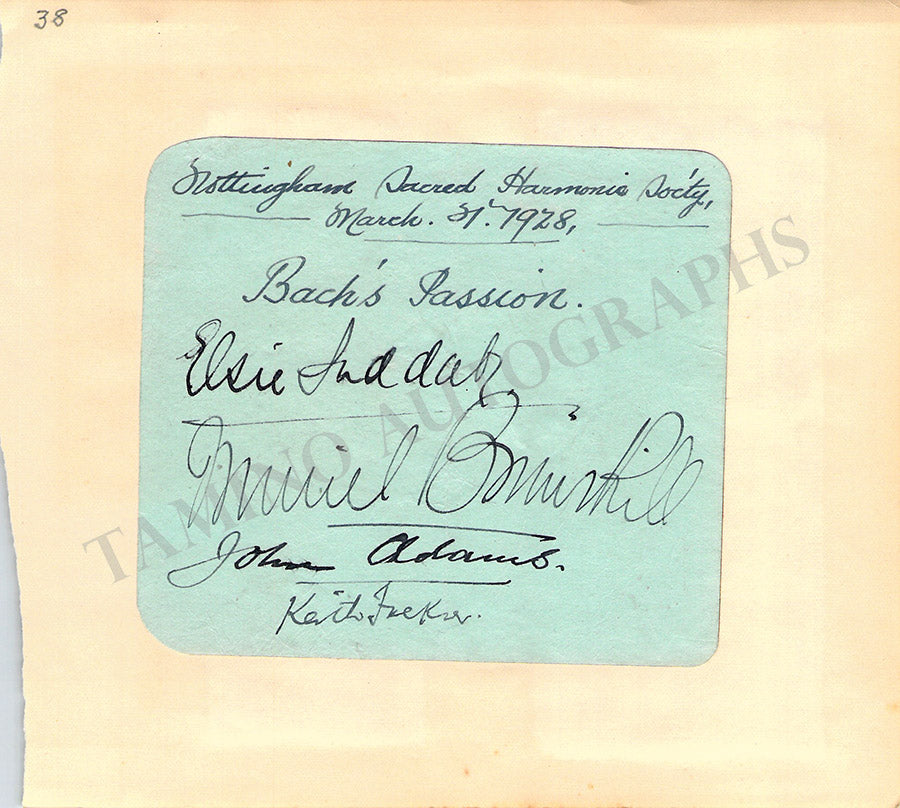 38
Nottingham Sacred Harmonic Soc'ty,
March. 21st. 1928,
Bach's Passion.
Elsie Suddaby
Muriel Brunskill
John Adams.
Keith Falkner.
TAMINO AUTOGRAPHS